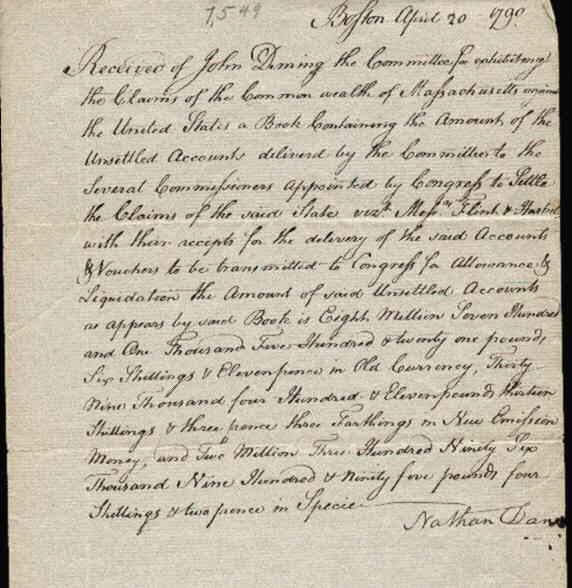 7,549
Boston April 20 1790
Received of John Deming the Committee for exhibiting
the Claims of the Common wealth of Massachusetts against
the United States a Book Containing the Amount of the
Unsettled Accounts deliverd by the Committee to the
Several Commissioners Appointed by Congress to Settle
the Claims of the said State vizt. Messrs. Flint &
with their recepts for the delivery of the said Accounts
& Vouchers to be transmitted to Congress for Allowance &
Liquidation the Amount of said Unsettled Accounts
as appears by said Book is Eight Million Seven Hundred
and One Thousand Five Hundred & twenty one pounds
Six Shillings & Elevenpence in Old Currency, Thirty
Nine Thousand four Hundred & Eleven pounds thirteen
Shillings & three pence three Farthings in New Emission
Money, and Two Million Three Hundred Ninety Six
Thousand Nine Hundred & Ninety five pounds four
Shillings & two pence in Specie
Nathan Dane